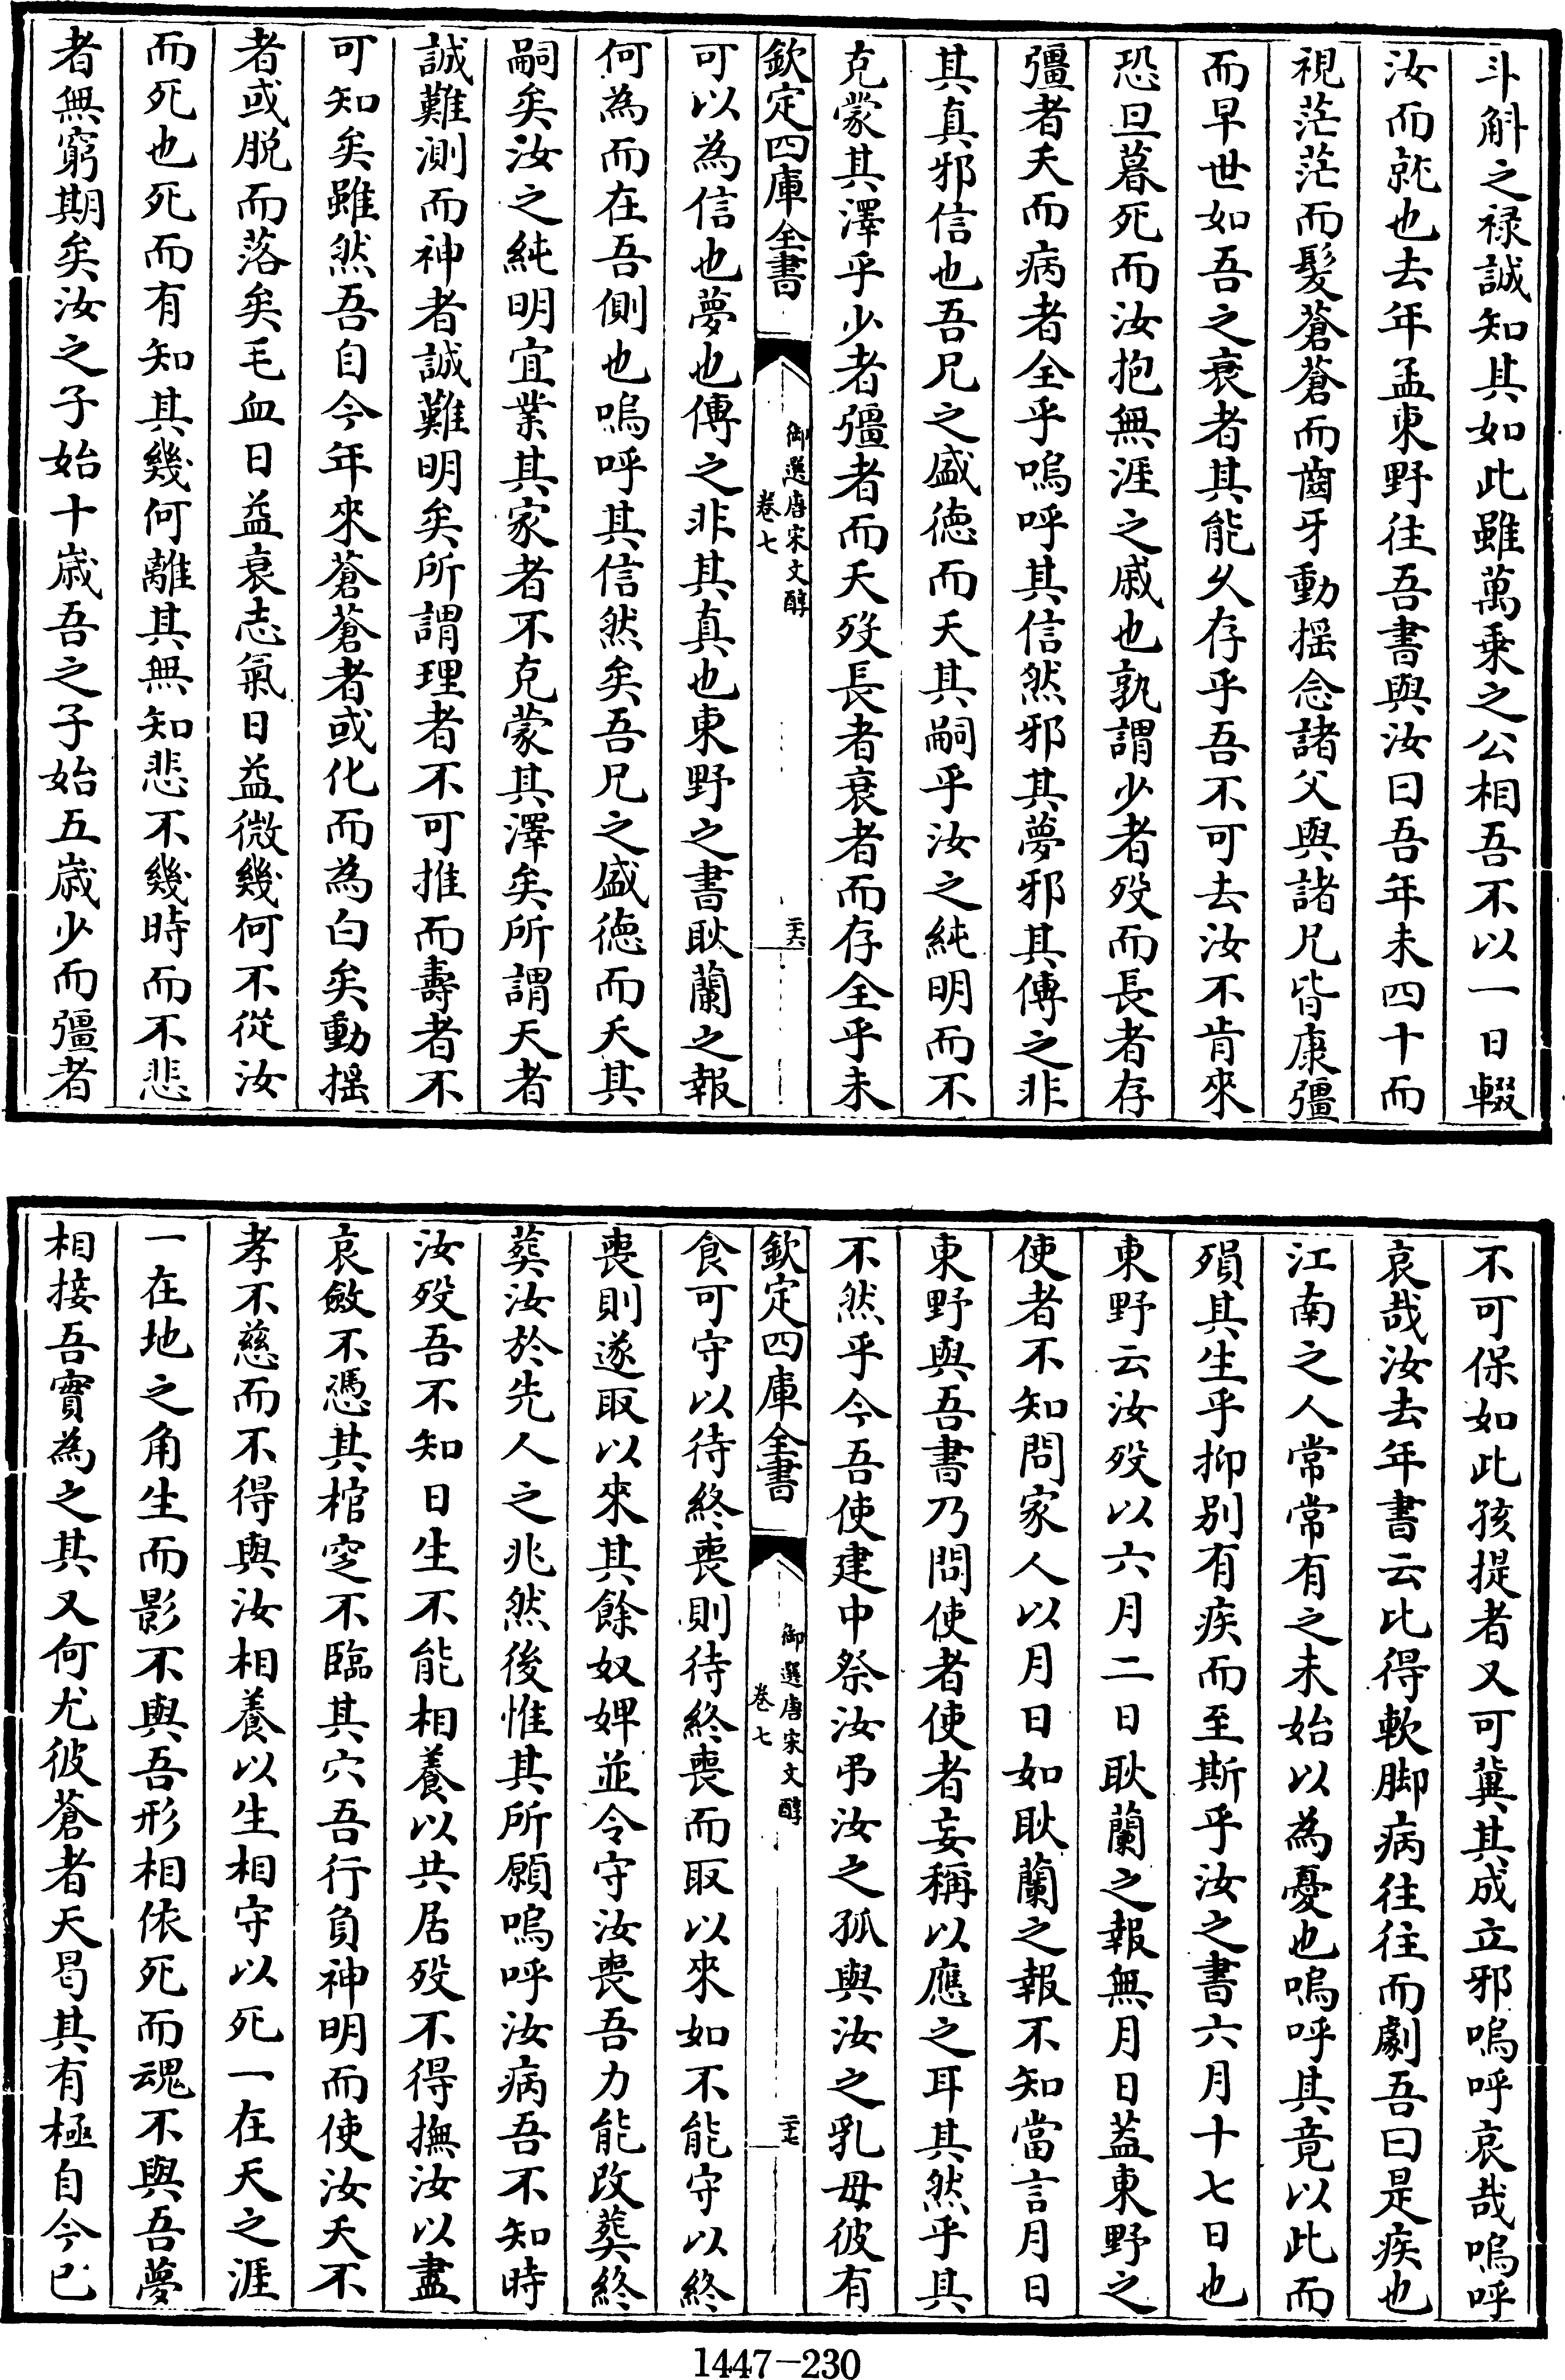 斗斛之祿誠知其如此雖萬乗之公相吾不以一日輟
汝而就也去年孟東野往吾書與汝曰吾年未四十而
視茫茫而髮蒼蒼而齒牙動揺念諸父與諸兄皆康彊
而早世如吾之衰者其能久存乎吾不可去汝不肯來
恐旦暮死而汝抱無涯之戚也孰謂少者歿而長者存
彊者夭而病者全乎嗚呼其信然邪其夢邪其傳之非
其真邪信也吾兄之盛徳而夭其嗣乎汝之純明而不
克蒙其澤乎少者彊者而夭歿長者衰者而存全乎未
欽定四庫全書
御選唐宋文醇
卷七
二十六
可以為信也夢也傳之非其真也東野之書耿蘭之報
何為而在吾側也嗚呼其信然矣吾兄之盛徳而夭其
嗣矣汝之純明宜業其家者不克蒙其澤矣所謂天者
誠難測而神者誠難明矣所謂理者不可推而壽者不
可知矣雖然吾自今年來蒼蒼者或化而為白矣動揺
者或脱而落矣毛血日益衰志氣日益微幾何不從汝
而死也死而有知其幾何離其無知悲不幾時而不悲
者無窮期矣汝之子始十歳吾之子始五歳少而彊者
不可保如此孩提者又可冀其成立邪嗚呼哀哉嗚呼
哀哉汝去年書云比得軟脚病往往而劇吾曰是疾也
江南之人常常有之未始以為憂也嗚呼其竟以此而
殞其生乎抑别有疾而至斯乎汝之書六月十七日也
東野云汝歿以六月二日耿蘭之報無月日蓋東野之
使者不知問家人以月日如耿蘭之報不知當言月日
東野與吾書乃問使者使者妄稱以應之耳其然乎其
不然乎今吾使建中祭汝弔汝之孤與汝之乳母彼有
欽定四庫全書
御選唐宋文醇
卷七
二十七
食可守以待終喪則待終喪而取以來如不能守以終
喪則遂取以來其餘奴婢並令守汝喪吾力能改葬終
葬汝於先人之兆然後惟其所願嗚呼汝病吾不知時
汝歿吾不知日生不能相養以共居歿不得撫汝以盡
哀斂不憑其棺窆不臨其穴吾行負神明而使汝夭不
孝不慈而不得與汝相養以生相守以死一在天之涯
一在地之角生而影不與吾形相依死而魂不與吾夢
相接吾實為之其又何尤彼蒼者天曷其有極自今已
1447-230